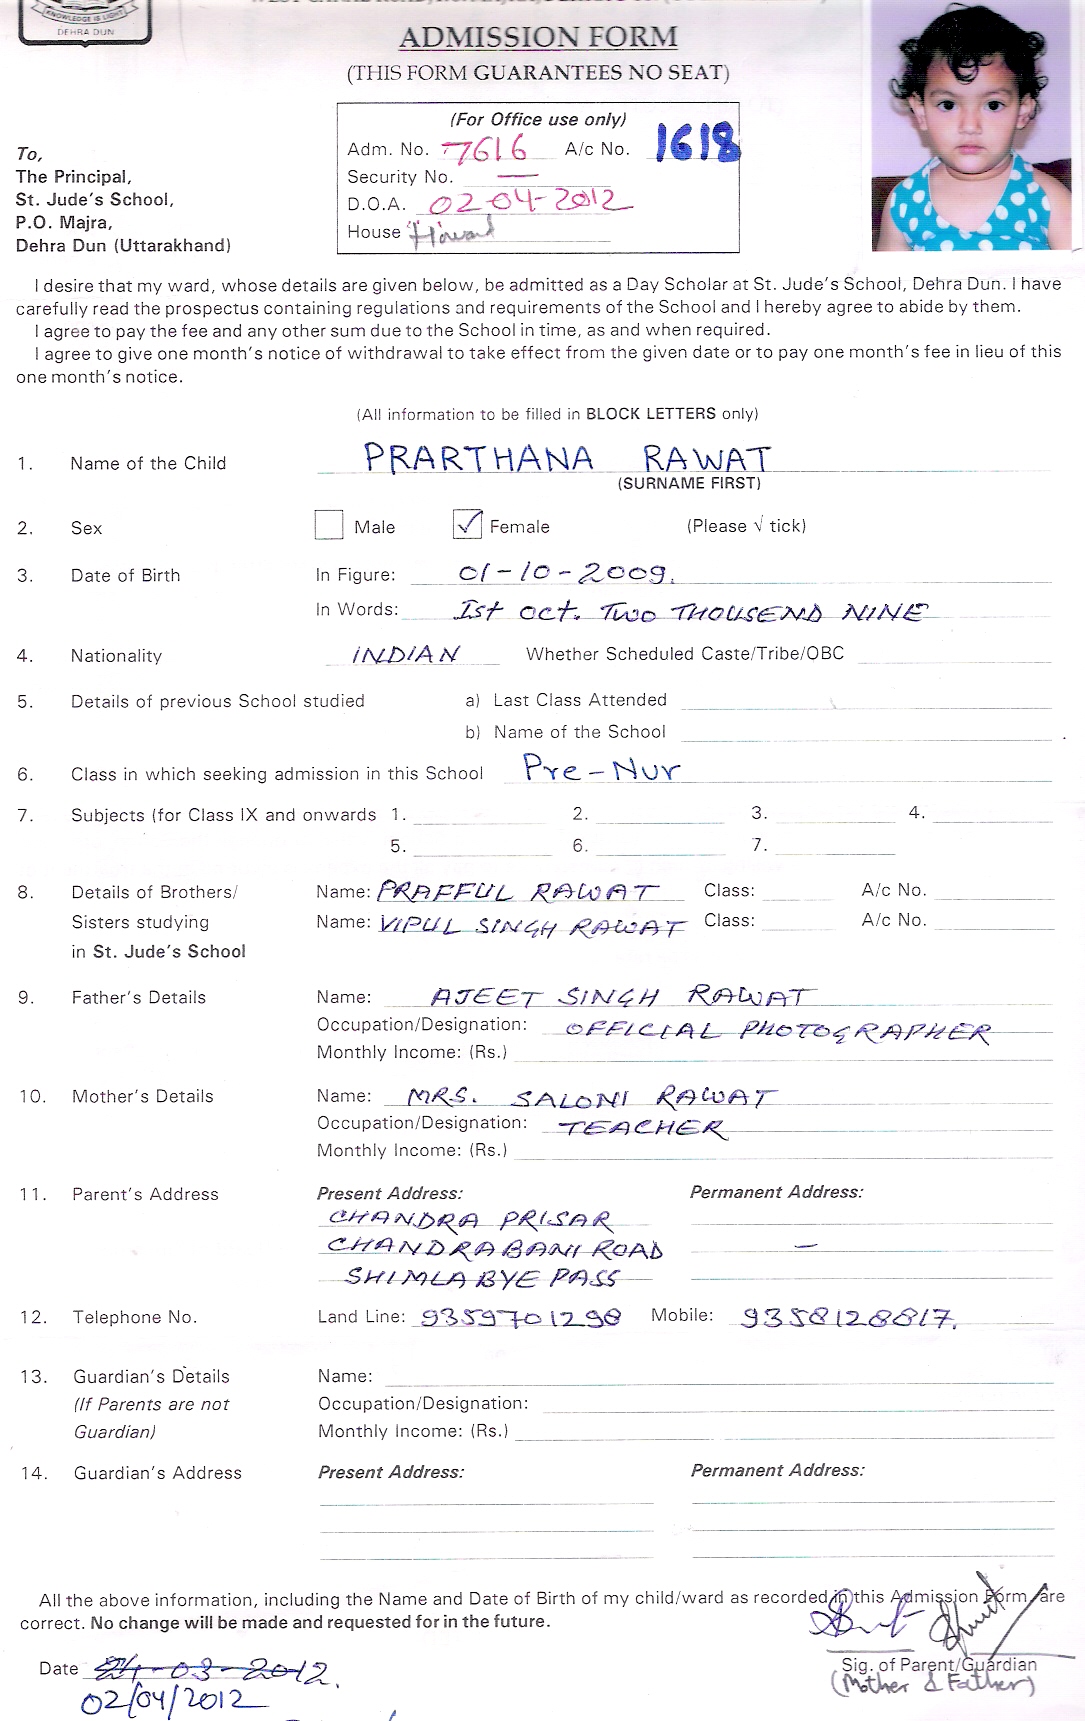 KNOWLEDGE IS LIGHT
DEHRA DUN
ADMISSION FORM
(THIS FORM GUARANTEES NO SEAT)
(For Office use only)
Adm. No. 7616 A/c No. 1618
Security No. —
D.O.A. 02-04-2012
House "Howard
To,
The Principal,
St. Jude's School,
P.O. Majra,
Dehra Dun (Uttarakhand)
I desire that my ward, whose details are given below, be admitted as a Day Scholar at St. Jude's School, Dehra Dun. I have
carefully read the prospectus containing regulations and requirements of the School and I hereby agree to abide by them.
I agree to pay the fee and any other sum due to the School in time, as and when required.
I agree to give one month's notice of withdrawal to take effect from the given date or to pay one month's fee in lieu of this
one month's notice.
(All information to be filled in BLOCK LETTERS only)
1. Name of the Child PRARTHANA RAWAT
(SURNAME FIRST)
2. Sex Male ✓ Female (Please √ tick)
3. Date of Birth In Figure: 01-10-2009.
In Words: Ist oct. TWO THOUSEND NINE
4. Nationality INDIAN Whether Scheduled Caste/Tribe/OBC
5. Details of previous School studied a) Last Class Attended
b) Name of the School
6. Class in which seeking admission in this School Pre-Nur
7. Subjects (for Class IX and onwards 1. 2. 3. 4.
5. 6. 7.
8. Details of Brothers/ Name: PRAFFUL RAWAT Class: A/c No.
Sisters studying Name: VIPUL SINGH RAWAT Class: A/c No.
in St. Jude's School
9. Father's Details Name: AJEET SINGH RAWAT
Occupation/Designation: OFFICIAL PHOTOGRAPHER
Monthly Income: (Rs.)
10. Mother's Details Name: MRS. SALONI RAWAT
Occupation/Designation: TEACHER
Monthly Income: (Rs.)
11. Parent's Address Present Address: Permanent Address:
CHANDRA PRISAR
CHANDRABANI ROAD —
SHIMLA BYE PASS
12. Telephone No. Land Line: 9359701298 Mobile: 9358128817.
13. Guardian's Details Name:
(If Parents are not Occupation/Designation:
Guardian) Monthly Income: (Rs.)
14. Guardian's Address Present Address: Permanent Address:
All the above information, including the Name and Date of Birth of my child/ward as recorded in this Admission Form are
correct. No change will be made and requested for in the future.
Date 24-03-2012.
02/04/2012
Sig. of Parent/Guardian
(Mother & Father)